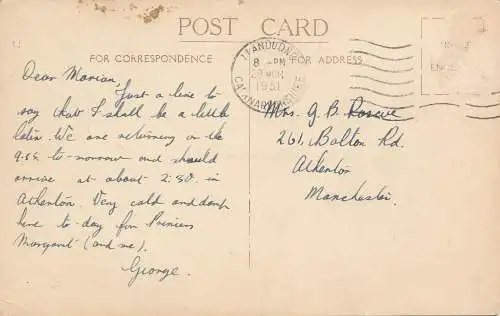 POST CARD
FOR CORRESPONDENCE
FOR ADDRESS
LLANDUDNO
8 - PM
1951
CAERNARVONSHIRE
Dear Marian,
Just a line to
say that I shall be a little
later. We are returning on the
9.05 to-morrow and should
arrive at about 2.30. in
Atherton. Very cold and damp
here to-day for Princess
Margaret (and me).
George.
Mrs. G. B.
261, Bolton Rd.
Atherton
Manchester.